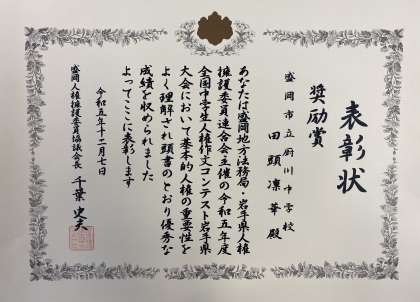 表彰状
奨励賞
盛岡市立厨川中学校
田頭凛華殿
あなたは盛岡地方法務局・岩手県人権
擁護委員連合会主催の令和五年度
全国中学生人権作文コンテスト岩手県
大会において基本的人権の重要性を
よく理解され頭書のとおり優秀な
成績を収められました
よってここに表彰します
令和五年十二月七日
盛岡人権擁護委員協議会長 千葉史夫